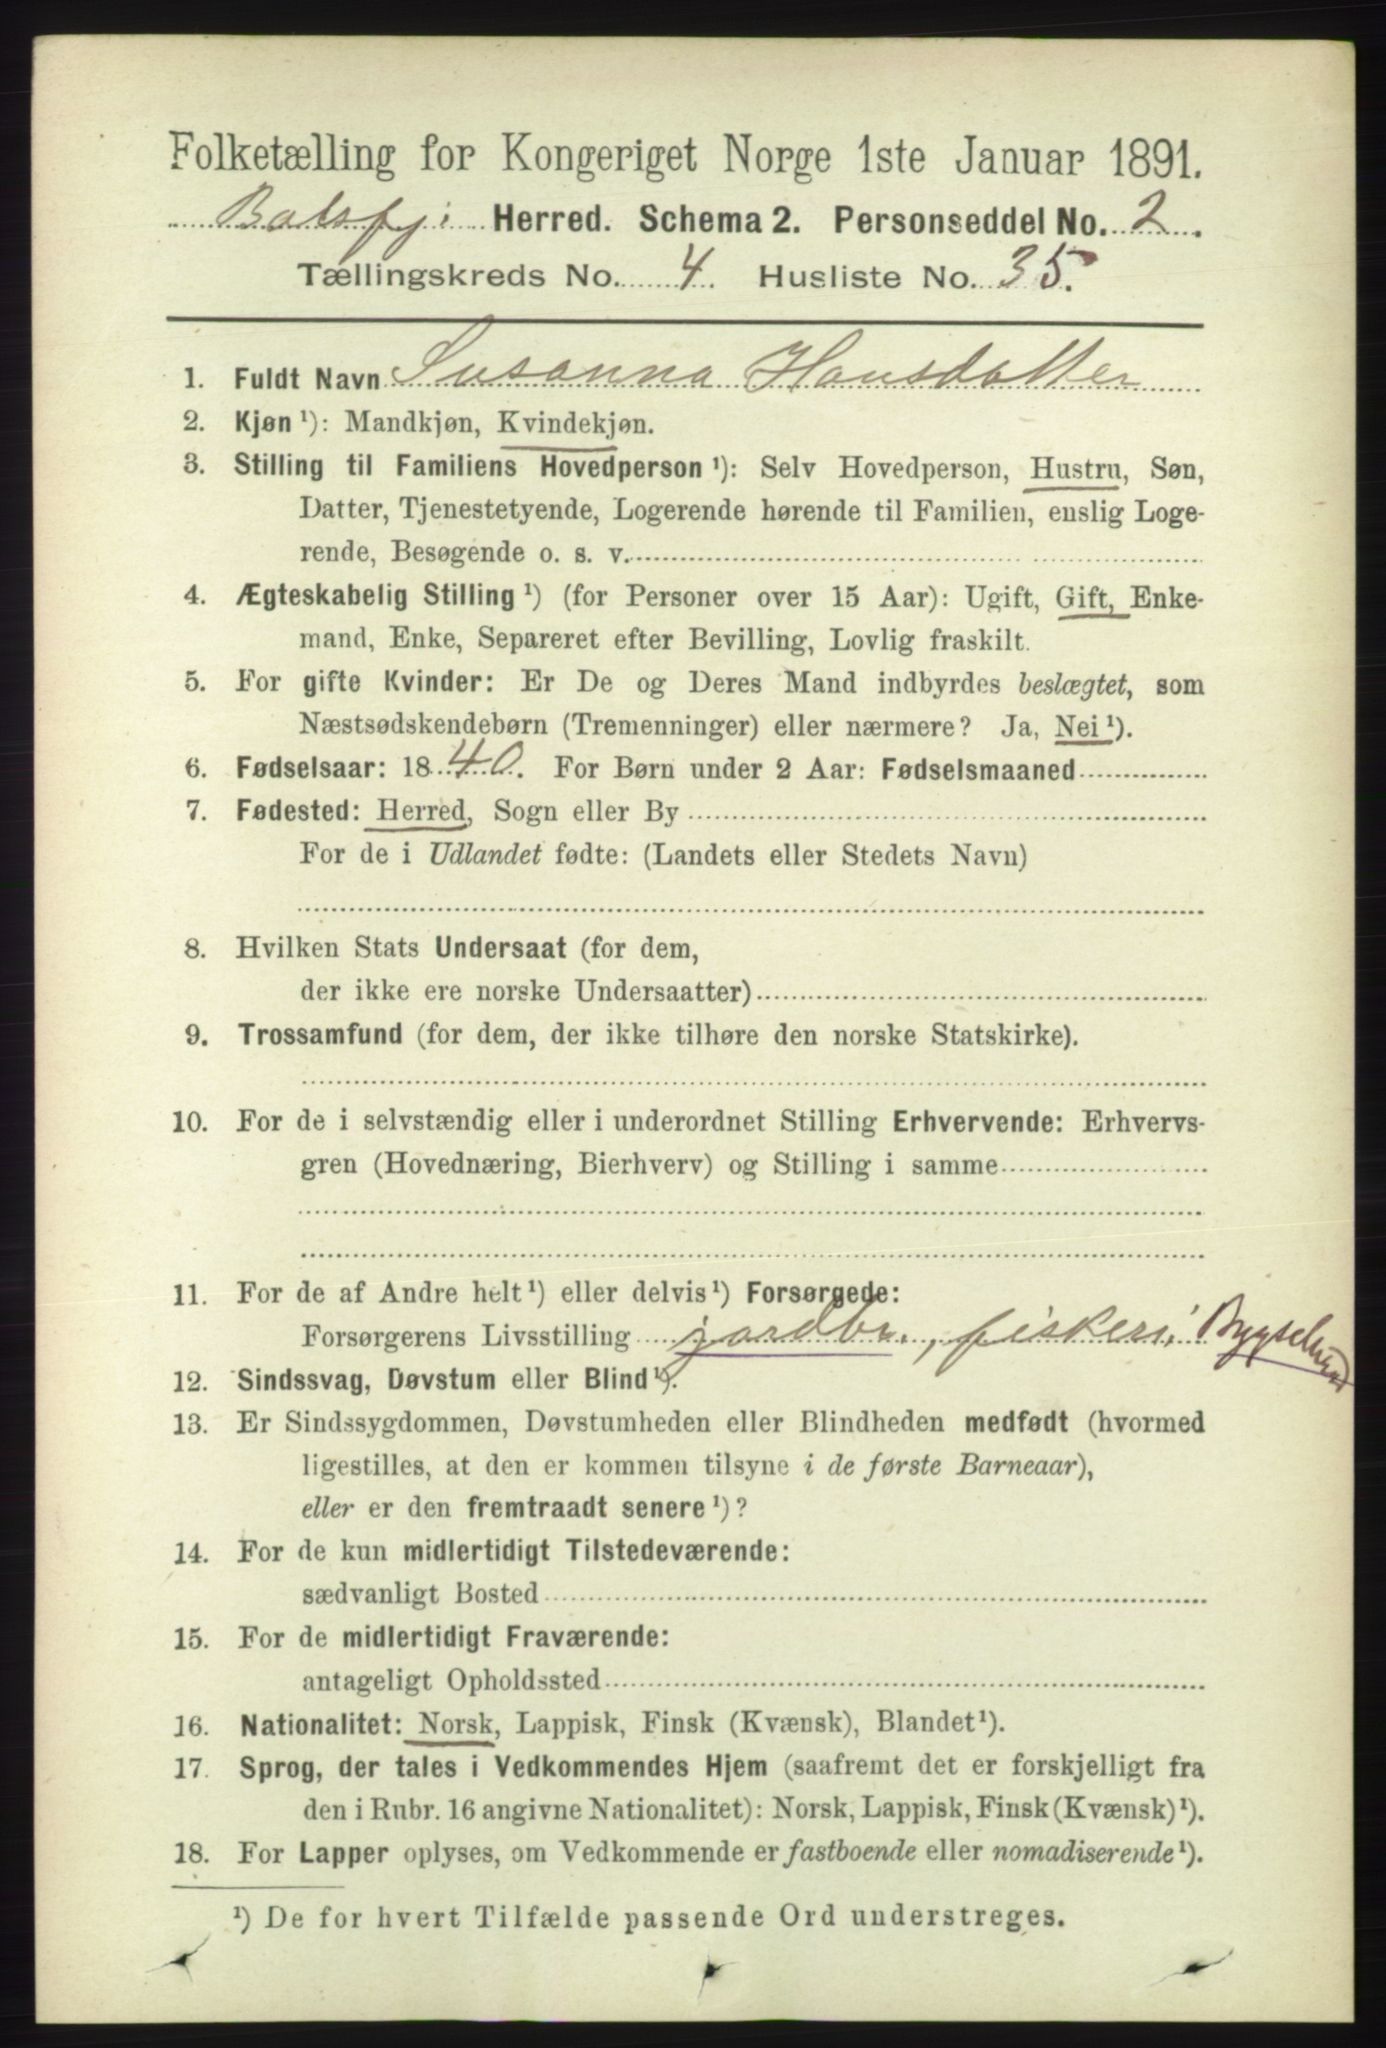 Folketælling for Kongeriget Norge 1ste Januar 1891.
Balsfj. Herred. Schema 2. Personseddel No. 2.
Tællingskreds No. 4. Husliste No. 35.
1. Fuldt Navn Susanna Hansdatter
2. Kjøn ¹): Mandkjøn, Kvindekjøn.
3. Stilling til Familiens Hovedperson ¹): Selv Hovedperson, Hustru, Søn,
Datter, Tjenestetyende, Logerende hørende til Familien, enslig Loge-
rende, Besøgende o. s. v.
4. Ægteskabelig Stilling ¹) (for Personer over 15 Aar): Ugift, Gift, Enke-
mand, Enke, Separeret efter Bevilling, Lovlig fraskilt.
5. For gifte Kvinder: Er De og Deres Mand indbyrdes beslægtet, som
Næstsødskendebørn (Tremenninger) eller nærmere? Ja, Nei ¹).
6. Fødselsaar: 1840. For Børn under 2 Aar: Fødselsmaaned
7. Fødested: Herred, Sogn eller By
For de i Udlandet fødte: (Landets eller Stedets Navn)
8. Hvilken Stats Undersaat (for dem,
der ikke ere norske Undersaatter)
9. Trossamfund (for dem, der ikke tilhøre den norske Statskirke).
10. For de i selvstændig eller i underordnet Stilling Erhvervende: Erhvervs-
gren (Hovednæring, Bierhverv) og Stilling i samme
11. For de af Andre helt ¹) eller delvis ¹) Forsørgede:
Forsørgerens Livsstilling jordbr., fiskeri,
12. Sindssvag, Døvstum eller Blind ¹).
13. Er Sindssygdommen, Døvstumheden eller Blindheden medfødt (hvormed
ligestilles, at den er kommen tilsyne i de første Barneaar),
eller er den fremtraadt senere ¹)?
14. For de kun midlertidigt Tilstedeværende:
sædvanligt Bosted
15. For de midlertidigt Fraværende:
antageligt Opholdssted
16. Nationalitet: Norsk, Lappisk, Finsk (Kvænsk), Blandet ¹).
17. Sprog, der tales i Vedkommendes Hjem (saafremt det er forskjelligt fra
den i Rubr. 16 angivne Nationalitet): Norsk, Lappisk, Finsk (Kvænsk) ¹).
18. For Lapper oplyses, om Vedkommende er fastboende eller nomadiserende ¹).
¹) De for hvert Tilfælde passende Ord understreges.